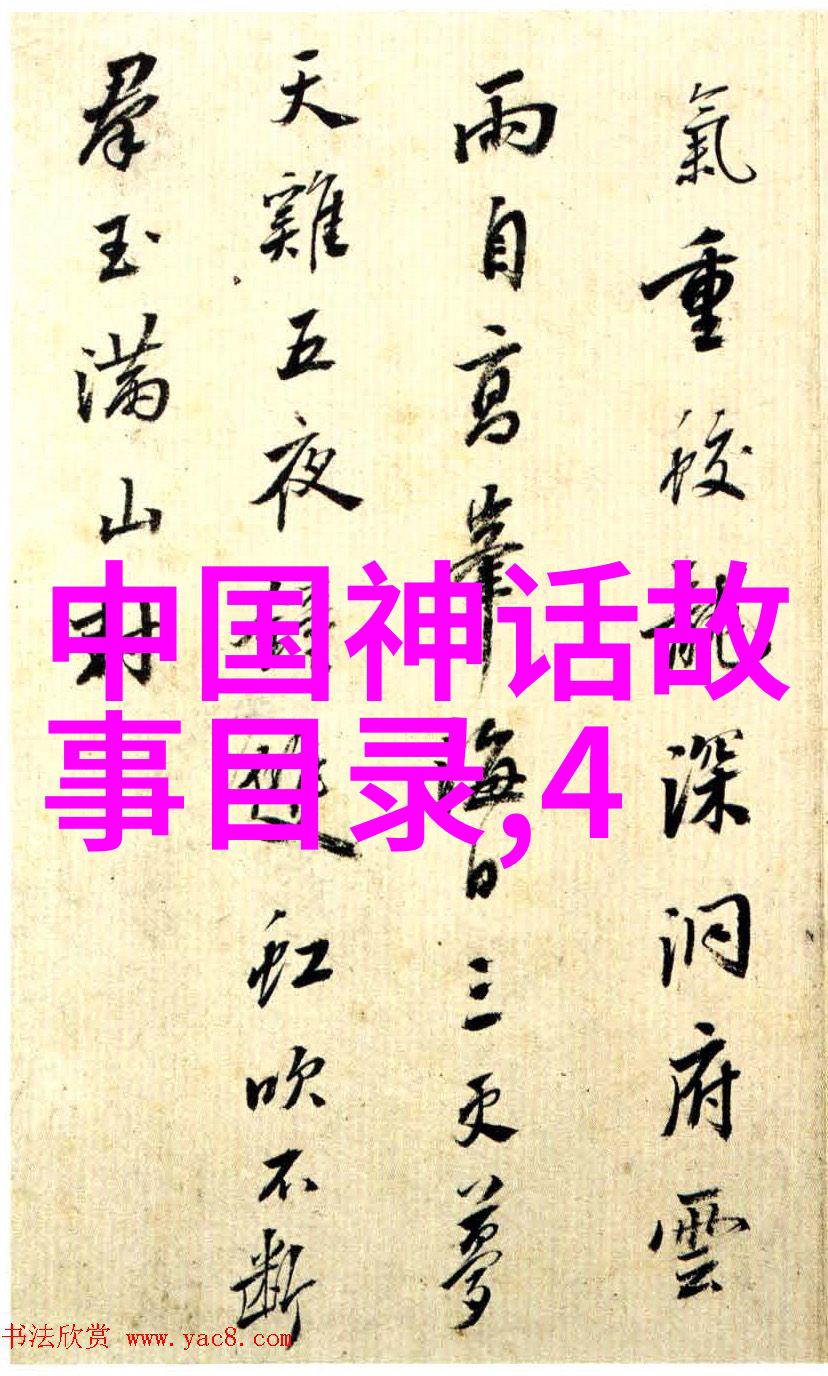 氣重蛟龍深洞府雲
雨自高峯海日三更夢
天雞五夜
虹吹不斷
羣玉滿山村
中国神话故
事目录,4
书法欣赏 www.yac8.com